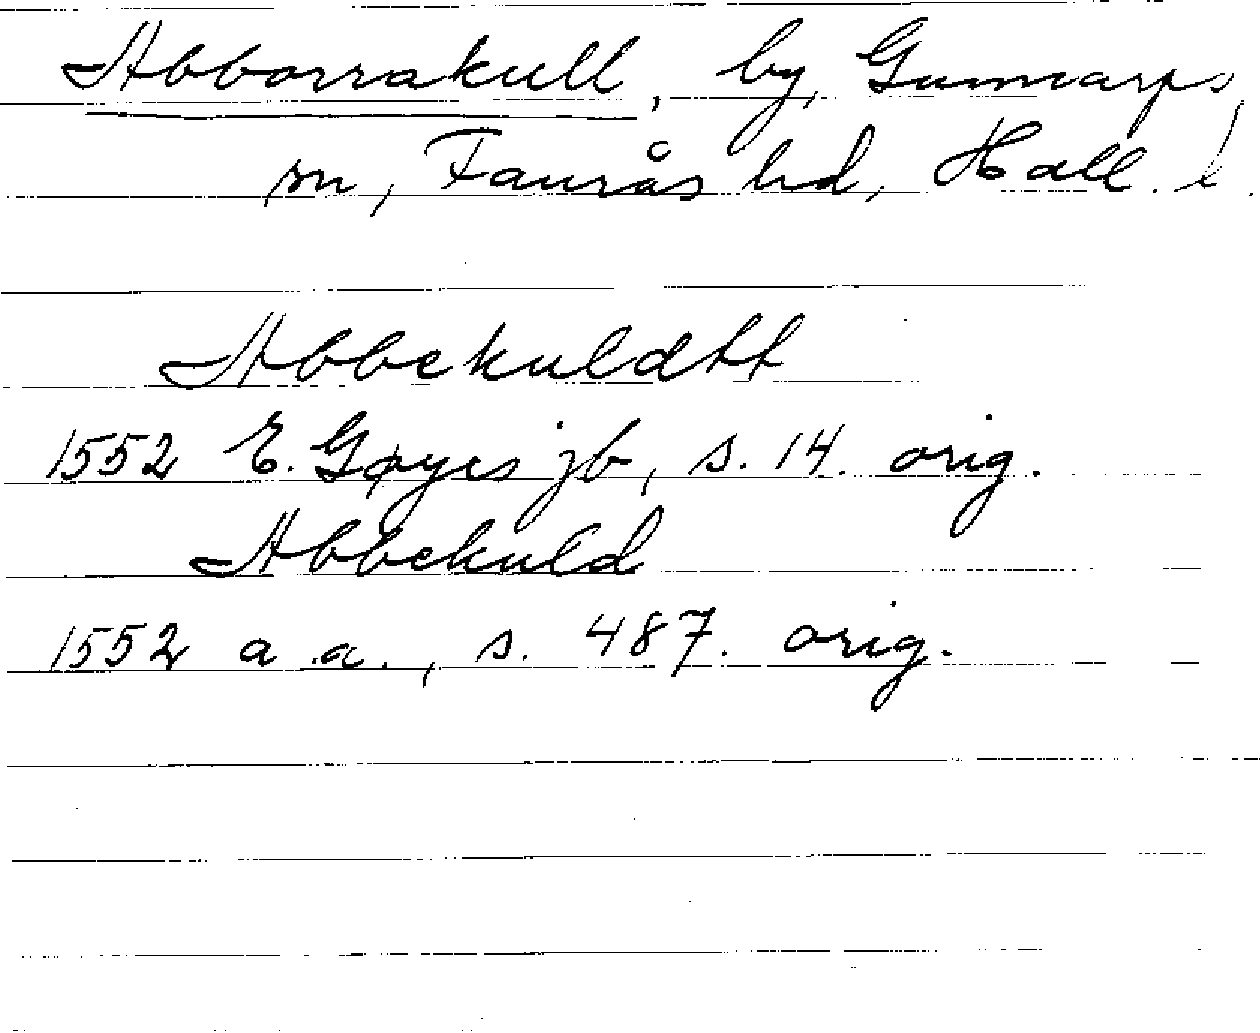 Abborrakull, by, Gunnarps
sn, Faurås hd, Hall. l.
Abbekuldtt
1552 E. Gøyes jb, s. 14. orig.
Abbekuld
1552 a. a., s. 487. orig.